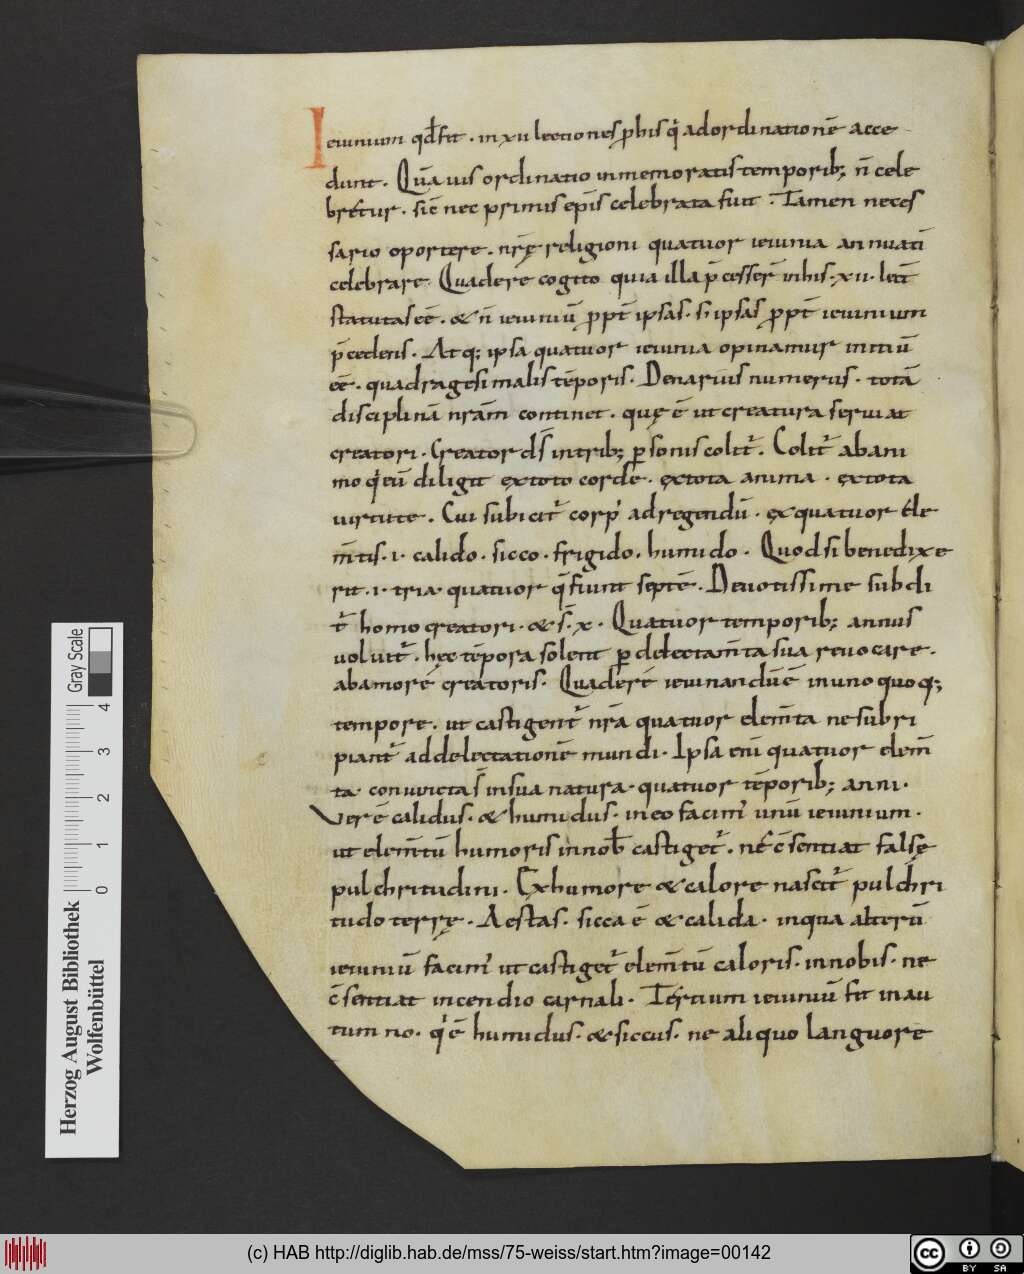 Ieiunium qd̄ fit · in xii lectiones ꝓ his q̇ ad ordinationē acce
dunt · Quāuis ordinatio in memoratis temporib; n̄ cele
bretur · sic̄ nec primis ep̄is celebrata fuit · Tamen neces
sario oportere · nr̄ę religioni quatuor ieiunia annuati
celebrare Quadere cogito quia illa p̄cesser̄ in his · xii · lect̄
statutas eē · & n̄ ieiuniū ꝓpt̄ ipsas · s; ipsas ꝓpt̄ ieiunium
p̄cedens · Atq; ipsa quatuor ieiunia opinamur initiū
eē · quadragesimalis tēporis · Denarius numerus · totā
disciplinā nrām continet · quę ē ut creatura seruiat
creatori · Creator ds̄ in trib; ꝑsonis colit᷑ · Colit᷑ ab ani
mo q̇ eū diligit ex toto corde · ex tota anima · ex tota
uirtute · Cui subicit᷑ corp᷒ ad regendū · ex quatuor ele
m̄tis · i · calido · sicco · frigido · humido · Quod si benedixe
rit · i · tria quatuor q̄ fiunt septē · Deuotissime subdi
t᷑ homo creatori · & s̄ · x · Quatuor temporib; annus
uoluit᷑ · hęc tēpora solent ꝑ delectam̄ta sua reuocare ·
ab amore creatoris · Quadere ieiunandū ē in unoquoq;
tempore · ut castigent᷑ nr̄a quatuor elem̄ta ne subri
piant᷑ ad delectationē mundi · Ipsa eni quatuor elem̄
ta · coniuncta s̄ in sua natura · quatuor tēporib; anni ·
Ver ē calidus · & humidus · in eo facim᷒ unū ieiunium ·
ut elem̄tū humoris in nob̄ castiget᷑ · ne c̄sentiat falsę
pulchritudini · Ex humore & calore nascit᷑ pulchri
tudo terrę · Aestas · sicca ē & calida · in qua alterū
ieiuniū facim᷒ ut castiget᷑ elem̄tū caloris · in nobis · ne
c̄sentiat incendio carnali · Tertium ieiuniū fit in au
tumno · q̇ ē humidus · & siccus · ne aliquo languore
Gray Scale
4
3
2
1
0
Herzog August Bibliothek
Wolfenbüttel
(c) HAB http://diglib.hab.de/mss/75-weiss/start.htm?image=00142
cc BY SA